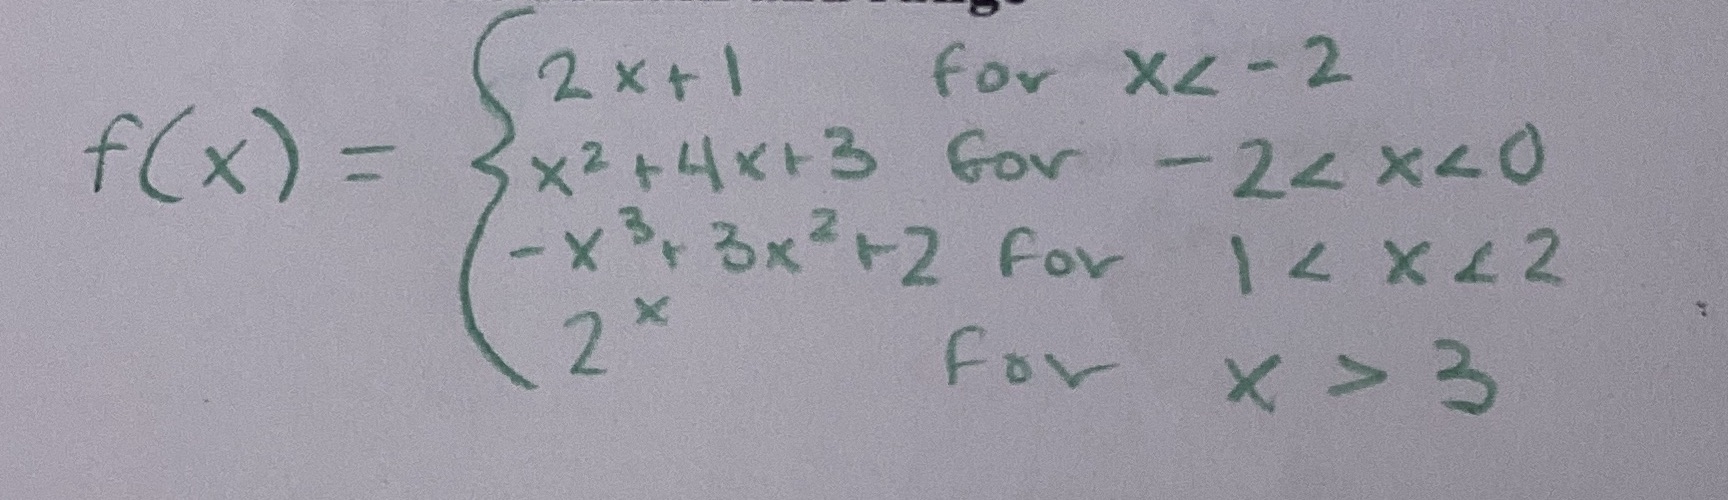 f(x) = { 2x+1 for x< -2
x² + 4x+3 for -2< x<0
-x³+ 3x²+2 for 1< x<2
2ˣ for x > 3